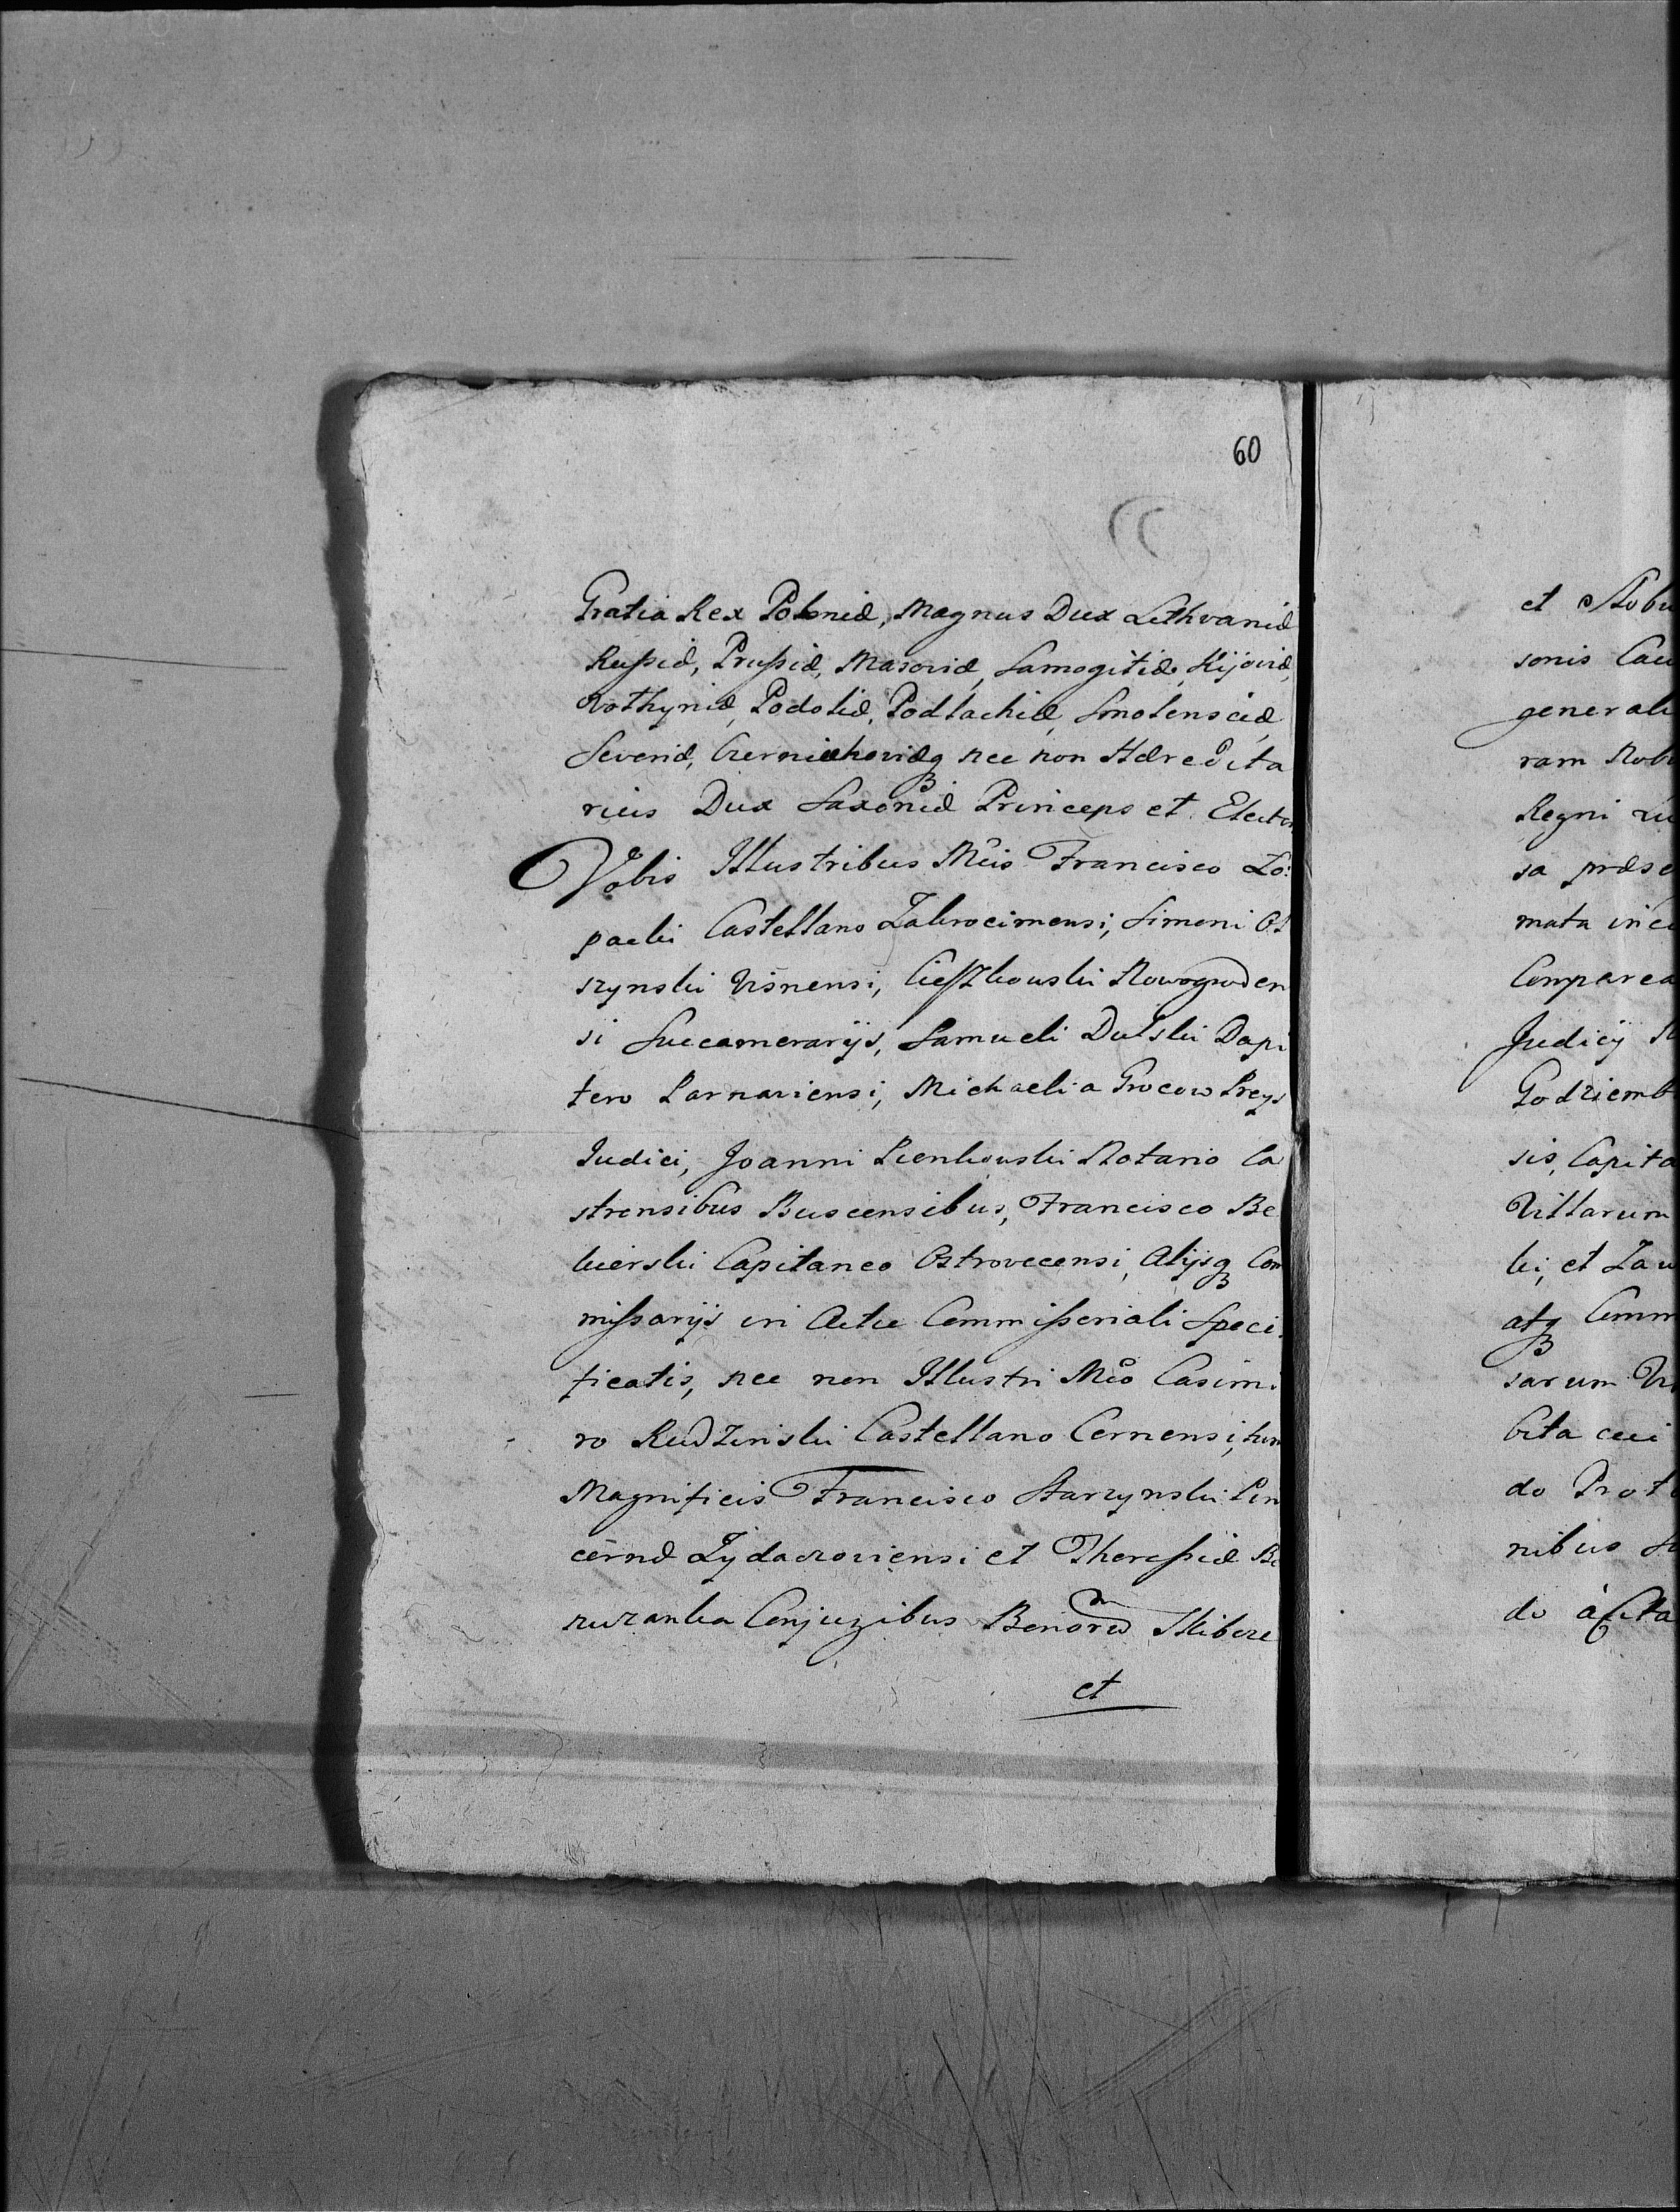 60
Gratia Rex Poloniæ, Magnus Dux Lithvaniæ
Rußiæ, Prußiæ, Masoviæ, Samogitiæ, Kijoviæ,
Volhyniæ, Podoliæ, Podlachiæ, Smolensciæ
Severiæ, Czerniechoviæq3 nec non Hæredita
rius Dux Saxoniæ Princeps et Elector
Vobis Illustribus Mcis Francisco Lo:
packi Castellano Zakrocimensi, Simoni Ol
szynski Visnensi, Cieszkowski Nowogroden
si Succamerarijs, Samueli Dulski Dapi
fero Parnaviensi, Michaeli a Grocow Preys
Iudici, Joanni Pienkowski Notario Ca
strensibus Buscensibus, Francisco Be
kierski Capitaneo Ostrovecensi, Alijsq3 Com
mißarijs in Actu Commißoriali Speci
ficatis, nec non Illustri Mco Casimi
ro Rudzinski Castellano Cernensi, tum
Magnificis Francisco Starzynski Pin
cernæ Zydaczoviensi et Thereßiæ Be
rzuzanka Conjugibus Bonorum Klibore
et
et Nobi
sonis Cau
generali
ram Nobi
Regni Lu
sa præse
mata inci
Comparea
Judicij
Godziemb
sis, Capita
Villarum
ki, et Zaw
atq3 Comm
sarum
bita cui
do Prot
nibus
do